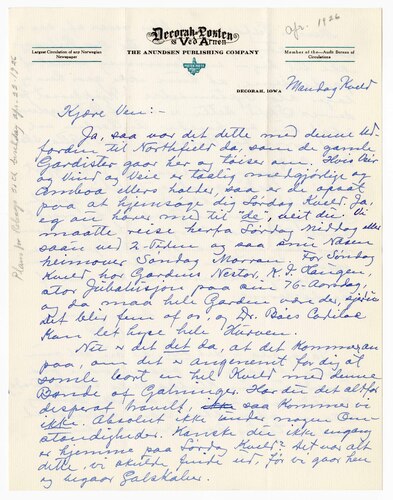 apr. 1926
Decorah-Posten
og Ved Arnen
Largest Circulation of any Norwegian
Newspaper
THE ANUNDSEN PUBLISHING COMPANY
Member of the Audit Bureau of
Circulations
DECORAH, IOWA
Mandag Kveld
Kjære Ven:-
Ja, saa var det dette med denne Ud-
færden til Northfield da, som de gamle
Gardister gaar her og taiser om. Hvis Veir
og Vind og Veie er taalig medgjørlige og
ellers holder, saa er de opsat
paa at hjemsøge dig Lørdag Kveld. Ja,
eg au høver med til "de", veit du. Vi
maatte reise herfra Lørdag Middag eller
saan ved 2-Tiden og saa snu Nasen
heimover Søndag Morran. For Søndag
Kveld har Gardens Nestor, K. J. Haugen,
stor Jubilæusjon paa sin 76-Aarsdag,
og da maa hele Garden være der,
Det blir fem af os, og Dr. Bæis Cadilac
kan let huse hele Kurven.
Nu er det det da, at det kommer an
paa, om det er angenemt for dig at
somle bort en hel Kveld med denne
Bande af Galninger. Har du det altfor
desperat travelt, saa kommer vi
ikke. Absolut ikke under nogen Om-
stændigheder. Kanske du ikke engang
er hjemme paa Lørdag Kveld? Det var alt
dette, vi skulde finde ud, før vi gaar hen
og begaar Galskaben.